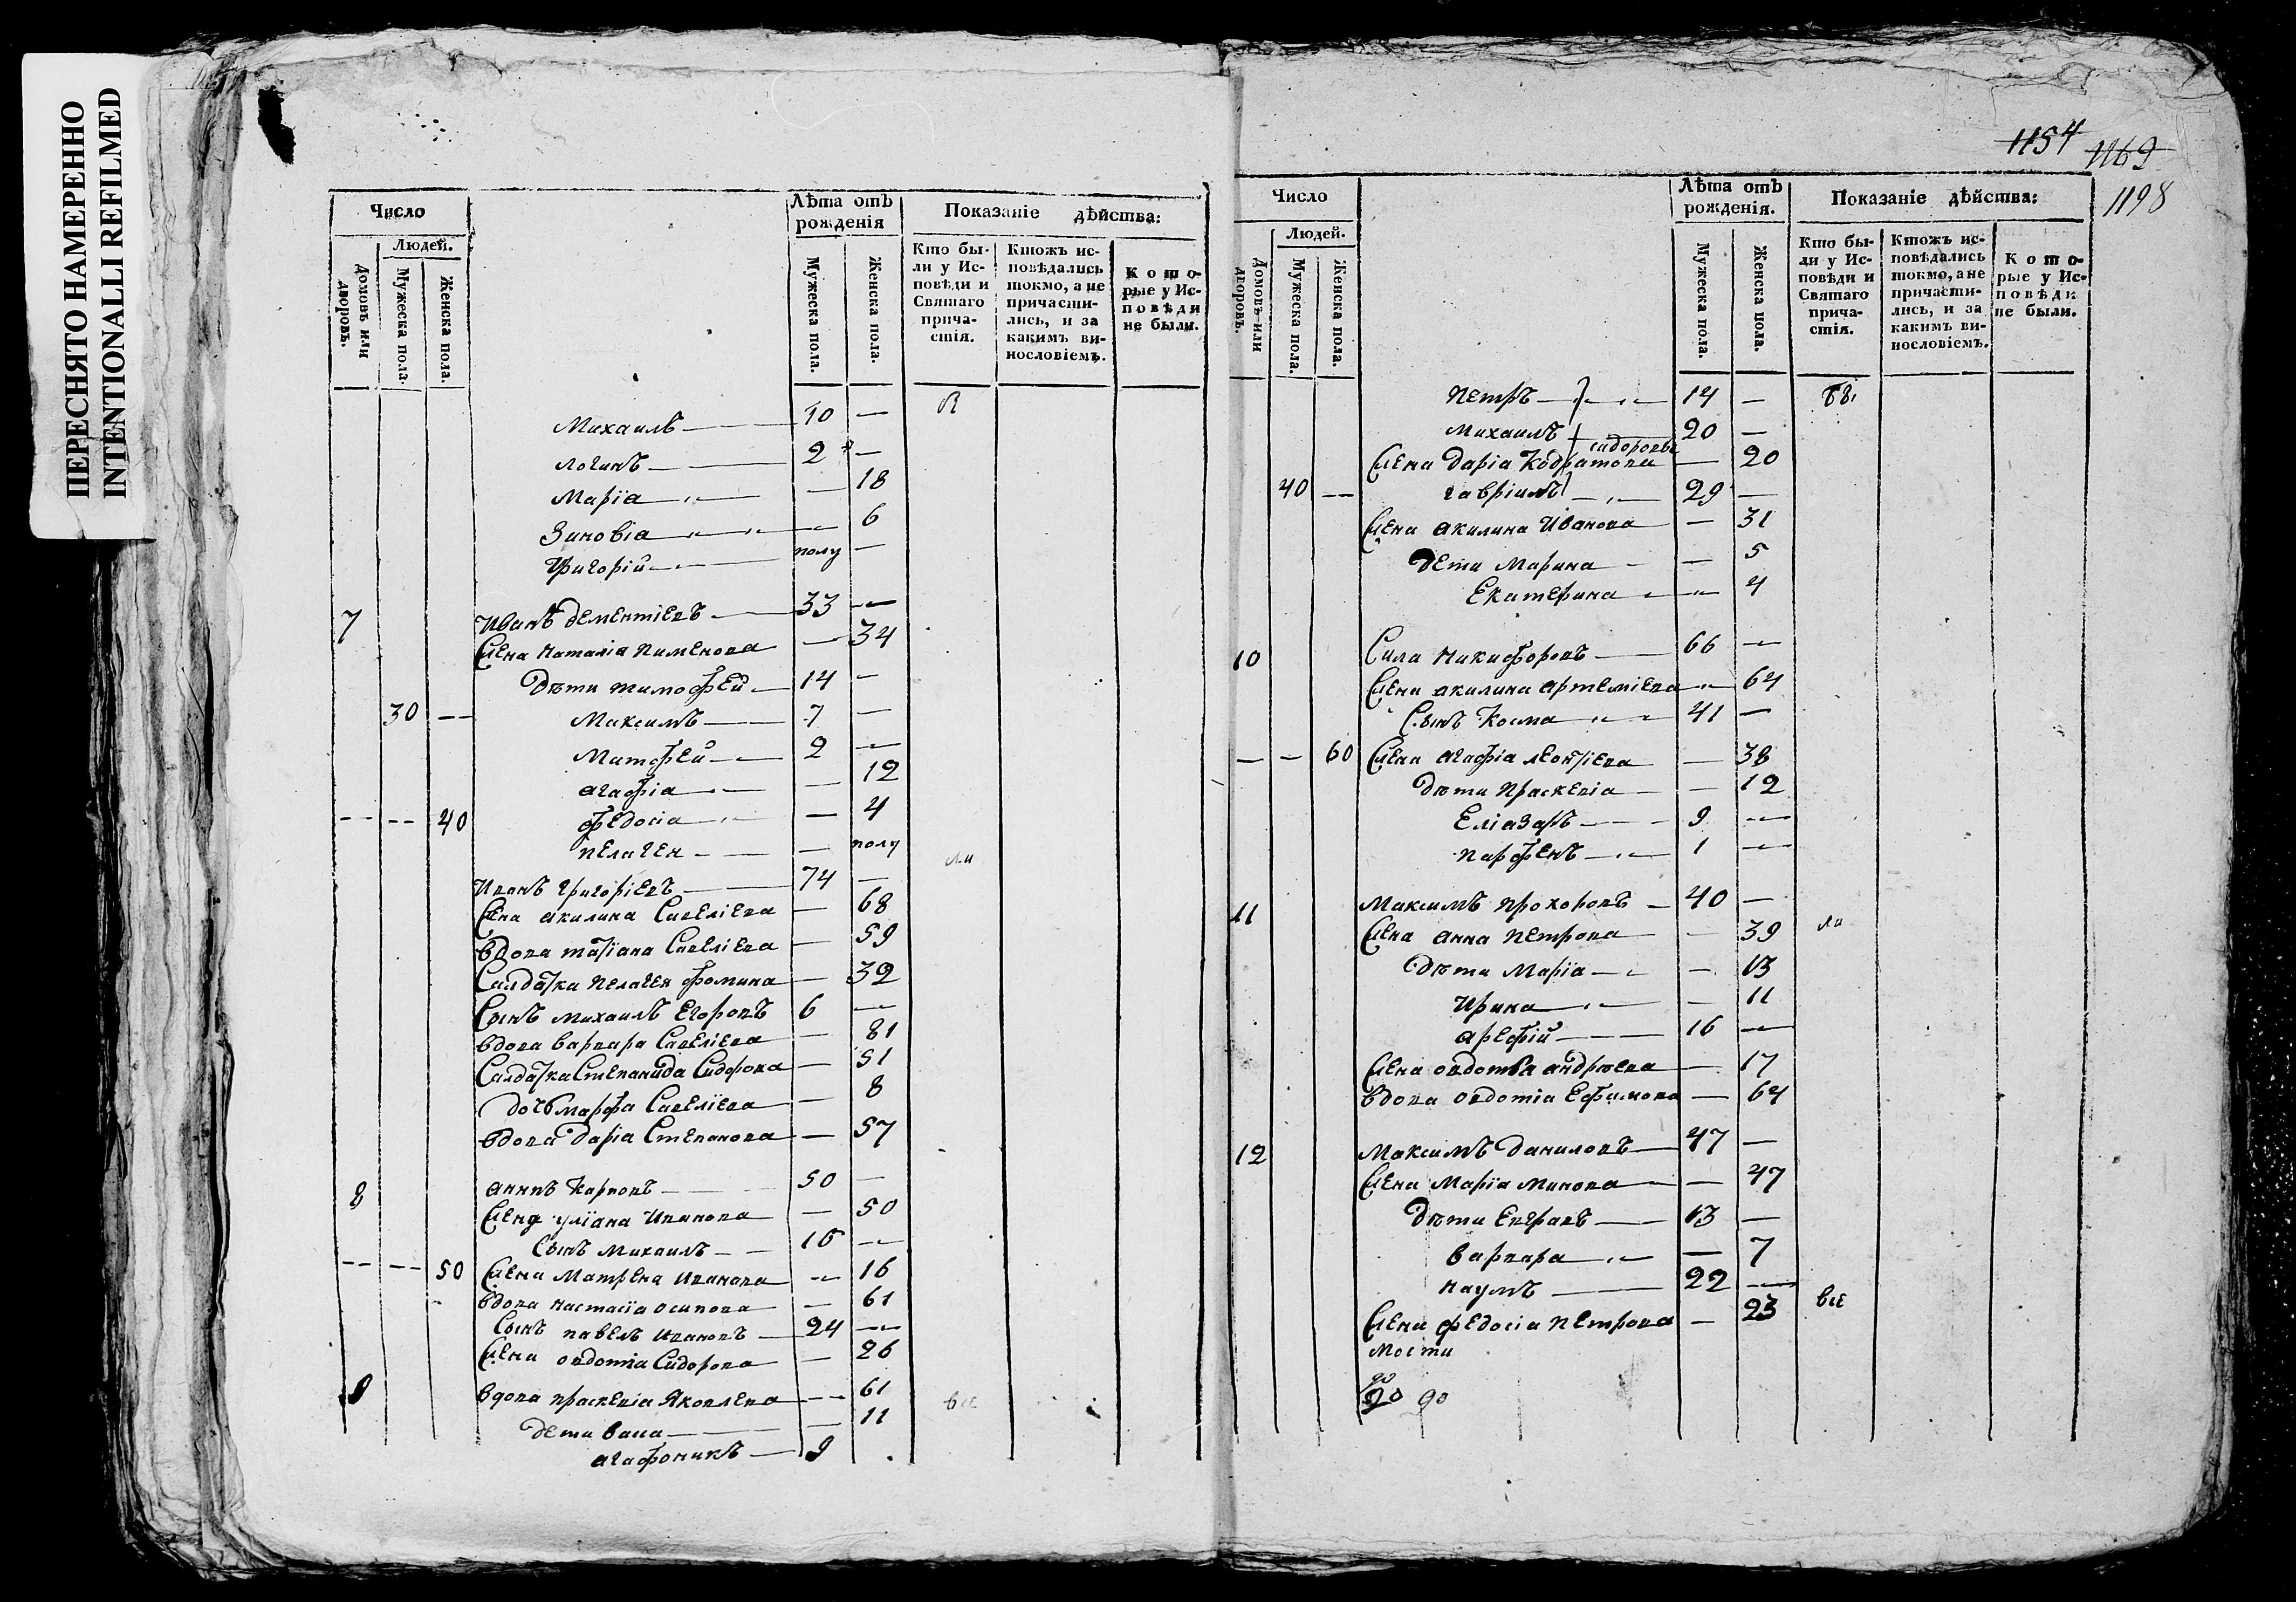 ПЕРЕСНЯТО НАМЕРЕННО
INTENTIONALLI REFILMED
Число
Людей.
домовъ или дворовъ.
Мужеска пола.
Женска пола.
Лѣта отъ рожденія
Мужеска пола.
Женска пола.
Показаніе дѣйства:
Кто бы-
ли у Ис-
повѣди и
Святаго
прича-
стія.
Ктожъ ис-
повѣдались
токмо, а не
причасти-
лись, и за
какимъ ви-
нословіемъ.
Кото-
рые у Ис-
повѣди
не были.
Михаилъ 10 —
Логинъ 2 —
Марїа — 18
Зиновїа — 6
Григорїй полу —
7 Иванъ Дементїевъ 33 —
Жена Наталїа Пименова — 34
Дѣти Тимофей 14 —
30 — Максимъ 7 —
Матфей 2 —
Агафїа — 12
— — 40 Федосїа — 4
Пелагея — полу
ли
Иванъ Григорїевъ 74 —
Жена Акилина Савелїева — 68
Вдова Татїана Савелїева — 59
Салдатка Пелагея Фомина — 32
Сынъ Михаилъ Егоровъ 6 —
Вдова Варвара Савелїева — 81
Салдатка Степанида Сидорова — 51
Дочь Марфа Савелїева — 8
Вдова Дарїа Степанова — 57
8 Карповъ 50 —
Жена Улїана Иванова — 50
Сынъ Михаилъ 16 —
— — 50 Жена Матрена Иванова — 16
Вдова Настасїа Осипова — 61
Сынъ Павелъ Ивановъ 24 —
Жена Овдотїа Сидорова — 26
9 Вдова Прасковїа Яковлева — 61
все
Дети Васа — 11
Агафоникъ 9
1154
1169
1198
Число
Людей.
домовъ или дворовъ.
Мужеска пола.
Женска пола.
Лѣта отъ рожденія.
Мужеска пола.
Женска пола.
Показаніе дѣйства:
Кто бы-
ли у Ис-
повѣди и
Святаго
прича-
стія.
Ктожъ ис-
повѣдались
токмо, а не
причасти-
лись, и за
какимъ ви-
нословіемъ.
Кото-
рые у Ис-
повѣди
не были.
Петръ 14 —
Михаилъ 20 —
Сидоровы
Жена Дарїа Кодратова — 20
40 — Гаврїилъ 29 —
Жена Акилина Иванова — 31
Дети Марина — 5
Екатерина — 4
10 Сила Никифоровъ 66 —
Жена Акилина Артемїева — 64
Сынъ Косма 41 —
— — 60 Жена Агафїа Леонтїева — 38
Дѣти Прасковїа — 12
Елїазаръ 9 —
Парфенъ 1 —
11 Максимъ Прохоровъ 40 —
Жена Анна Петрова — 39
ли
Дѣти Марїа — 13
Ирина — 11
Арефїй 16 —
Жена Овдотїа Андрѣева — 17
Вдова Овдотїа Ефимова — 64
12 Максимъ Даниловъ 47 —
Жена Марїа Минова — 47
Дѣти Евграфъ 13 —
Варвара — 7
Наумъ 22 —
все
Жена Федосїа Петрова — 23
Мости